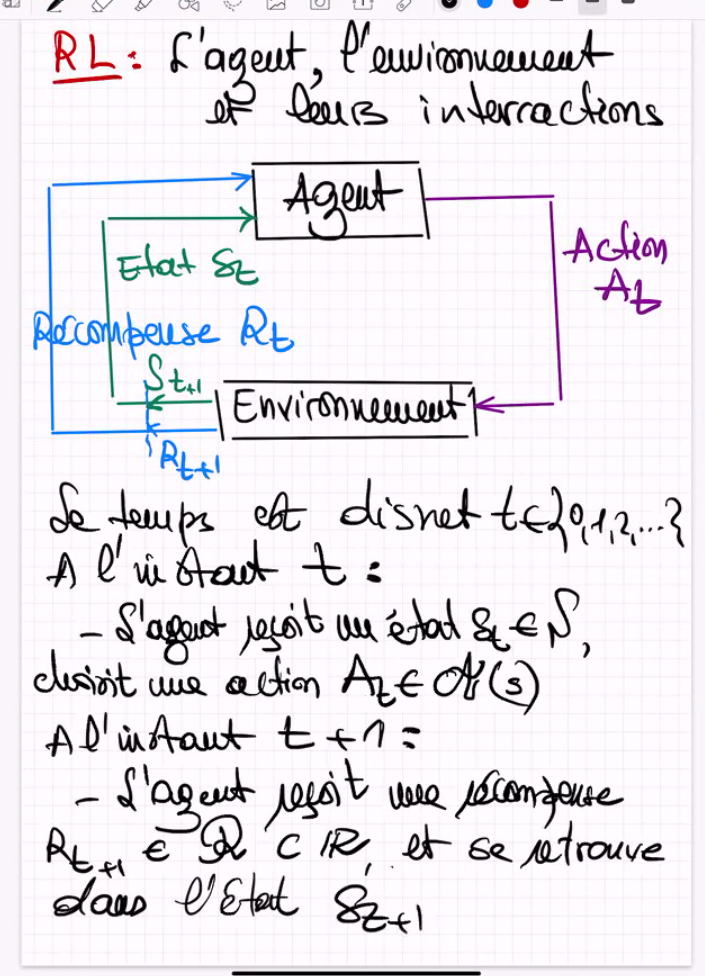 RL : L'agent, l'environnement
et leurs interractions
Agent
Action
A_t
Etat S_t
Récompense R_t
S_{t+1}
Environnement
R_{t+1}
Le temps est discret t ∈ {0,1,2,...}
A l'instant t :
- L'agent reçoit un état S_t ∈ S,
choisit une action A_t ∈ A(s)
A l'instant t+1 :
- L'agent reçoit une récompense
R_{t+1} ∈ R ⊂ ℝ, et se retrouve
dans l'Etat S_{t+1}